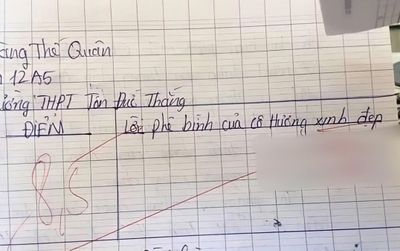 Thế Quân
12A5
THPT Tôn Đức Thắng
ĐIỂM Lời phê bình của cô Hương xinh đẹp
8,5